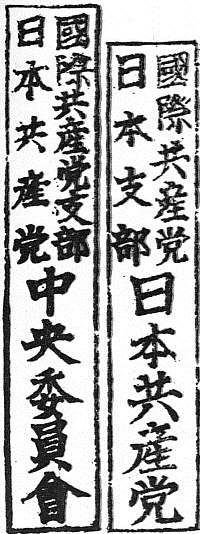 國際共產党
日本支部
日本共產党
國際共產党支部
日本共產党
中央委員會